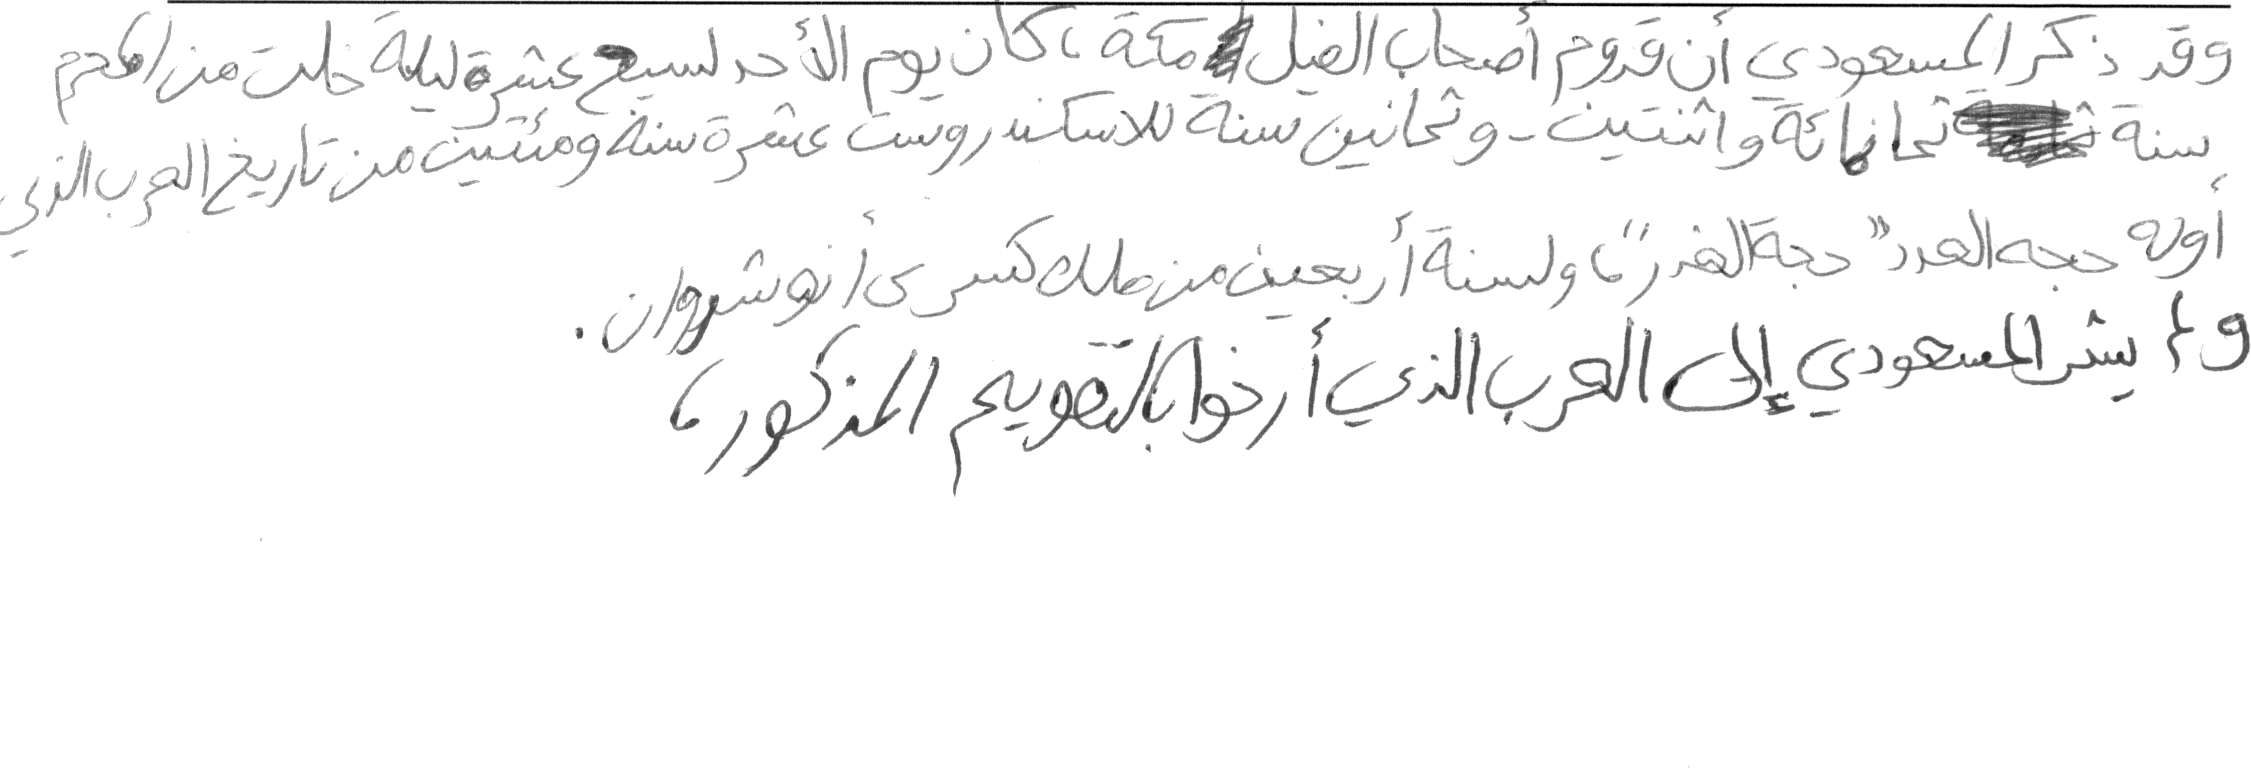 وقد ذكر المسعودي أن قدوم أصحاب الفيل مكة ، كان يوم الأحد لسبع عشرة ليلة خلت من المحرم
سنة ثمانمائة واثنتين - وثمانين سنة للاسكندر وست عشرة سنة ومئتين من تاريخ العرب الذي
أوله حجه العدد "حجة الغدر" ، ولسنة أربعين من ملك كسرى أنوشروان .
ولم يشر المسعودي إلى العرب الذي أرخوا بالتقويم المذكور ،